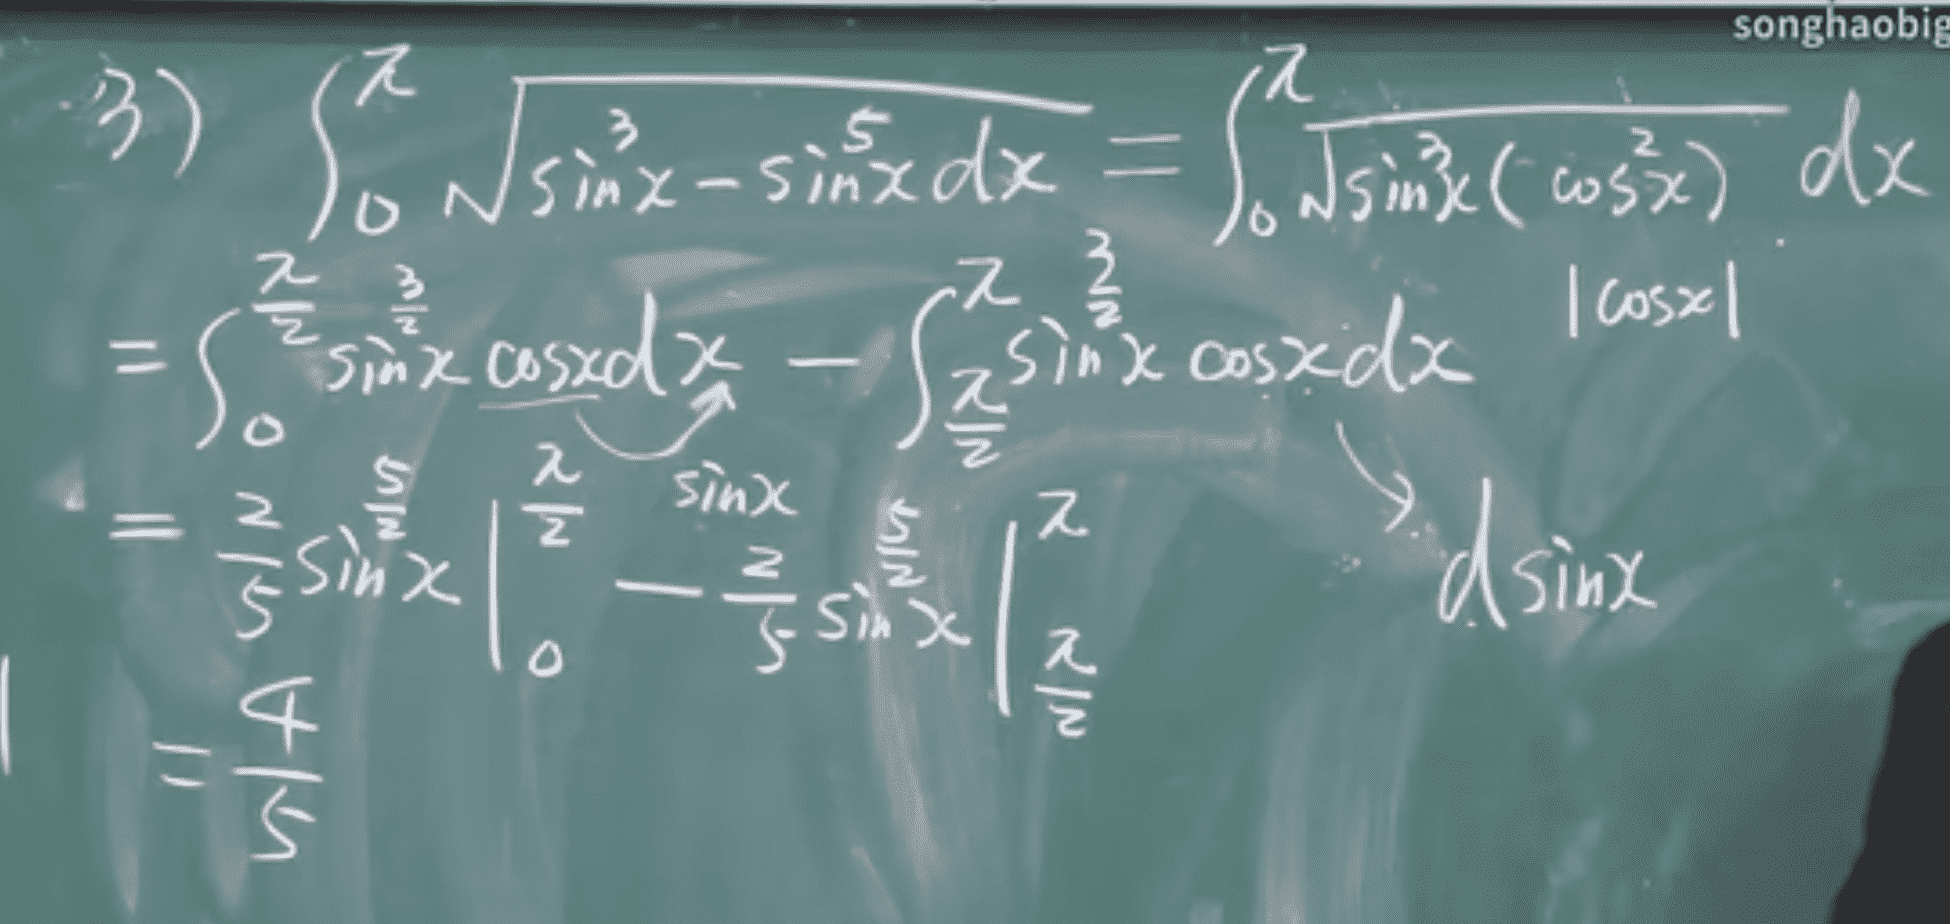 songhaobig
3) ∫₀^π √(sin³x − sin⁵x dx) = ∫₀^π √(sin³x (cos²x)) dx
|cosx|
= ∫₀^(π/2) sin^(3/2) x cosx dx − ∫_(π/2)^π sin^(3/2) x cosx dx
sinx
= 2/5 sin^(5/2) x |₀^(π/2) − 2/5 sin^(5/2) x |_(π/2)^π
d sinx
= 4/5